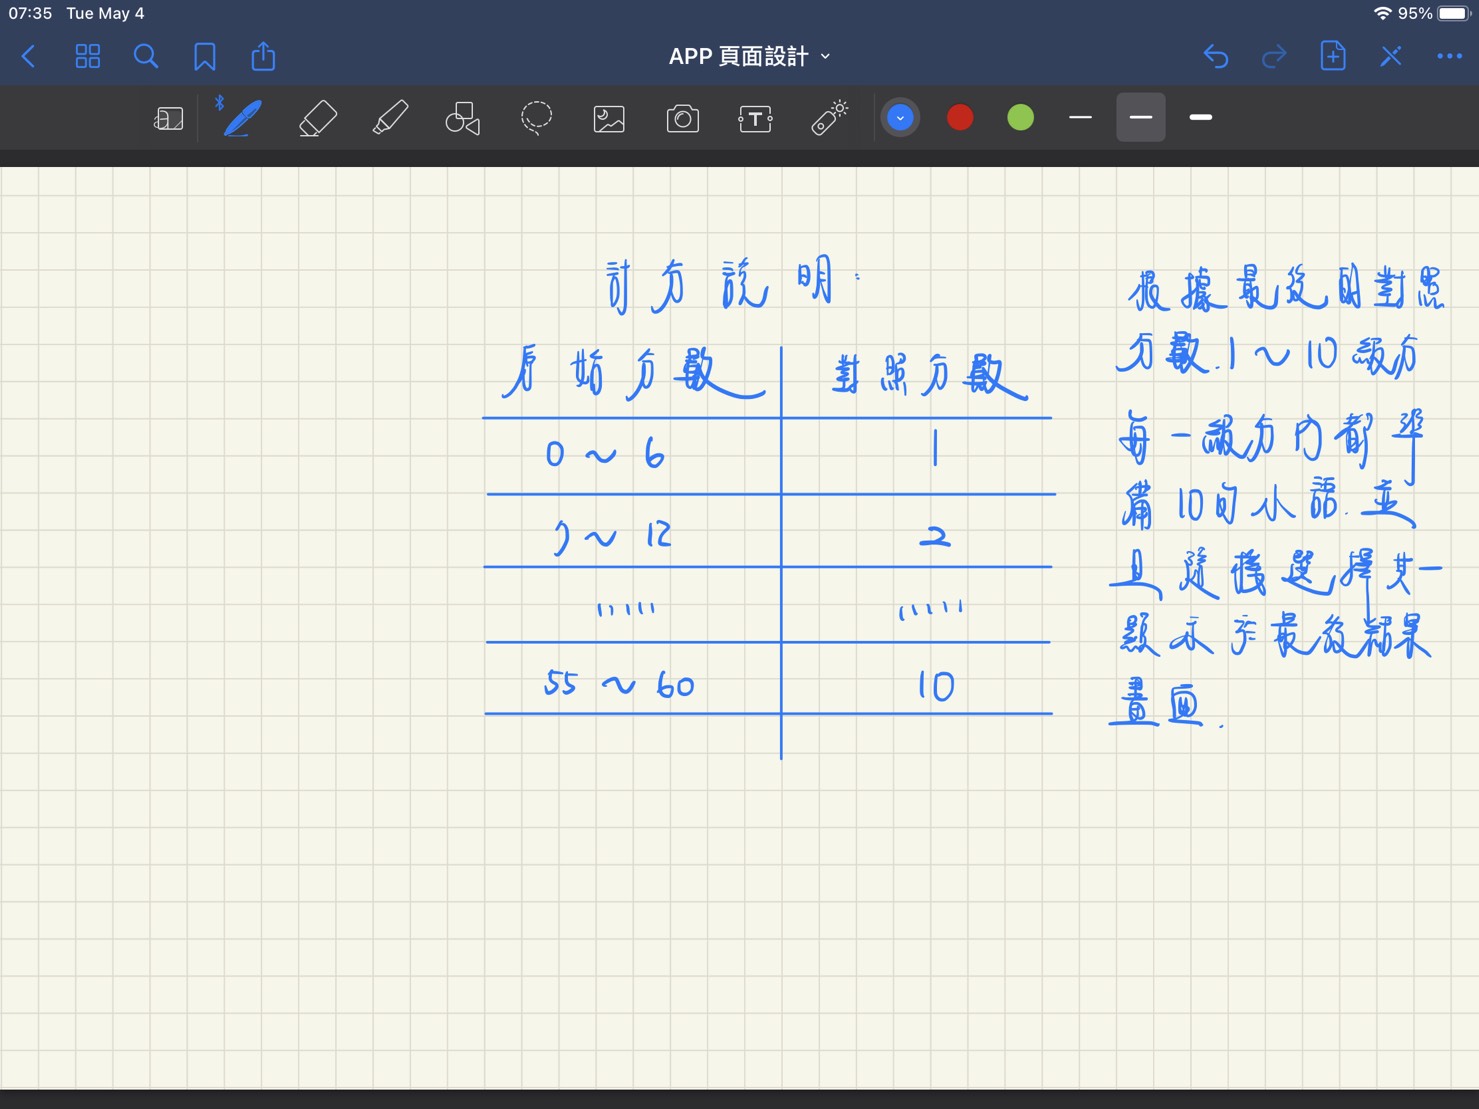 07:35 Tue May 4
95%
APP 頁面設計
T
計分說明:
原始分數 對照分數
0 ~ 6 1
7 ~ 12 2
..... .....
55 ~ 60 10
根據最後的對照
分數.1~10級分
每一級分內都準
備10句小語.並
且隨機選擇其一
顯示於最後結果
畫面.